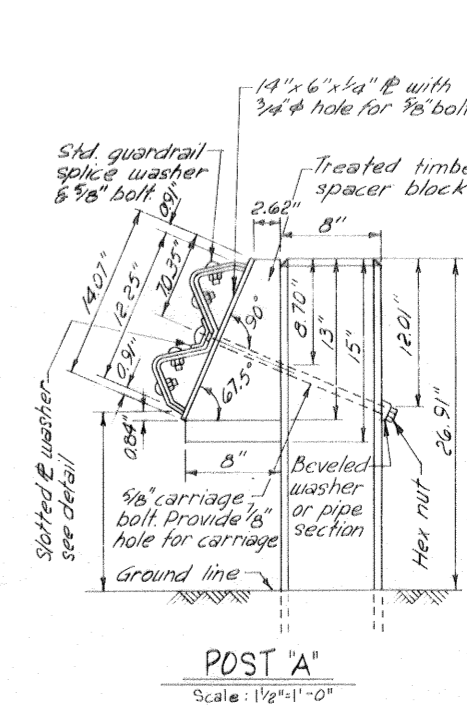 14"x 6"x 1/4" ⅊ with
3/4"ϕ hole for 5/8" bolt
Std. guardrail
splice washer
& 5/8" bolt.
Treated timbe
spacer block
2.62"
8"
0.91"
14.07"
12.25"
10.35"
0.91"
90°
67.5°
8.70"
13"
15"
12.01"
26.91"
0.84"
8"
Slotted ⅊ washer
see detail
5/8" carriage
bolt. Provide 7/8"
hole for carriage
Beveled
washer
or pipe
section
Hex nut
Ground line
POST "A"
Scale: 1 1/2"=1'-0"